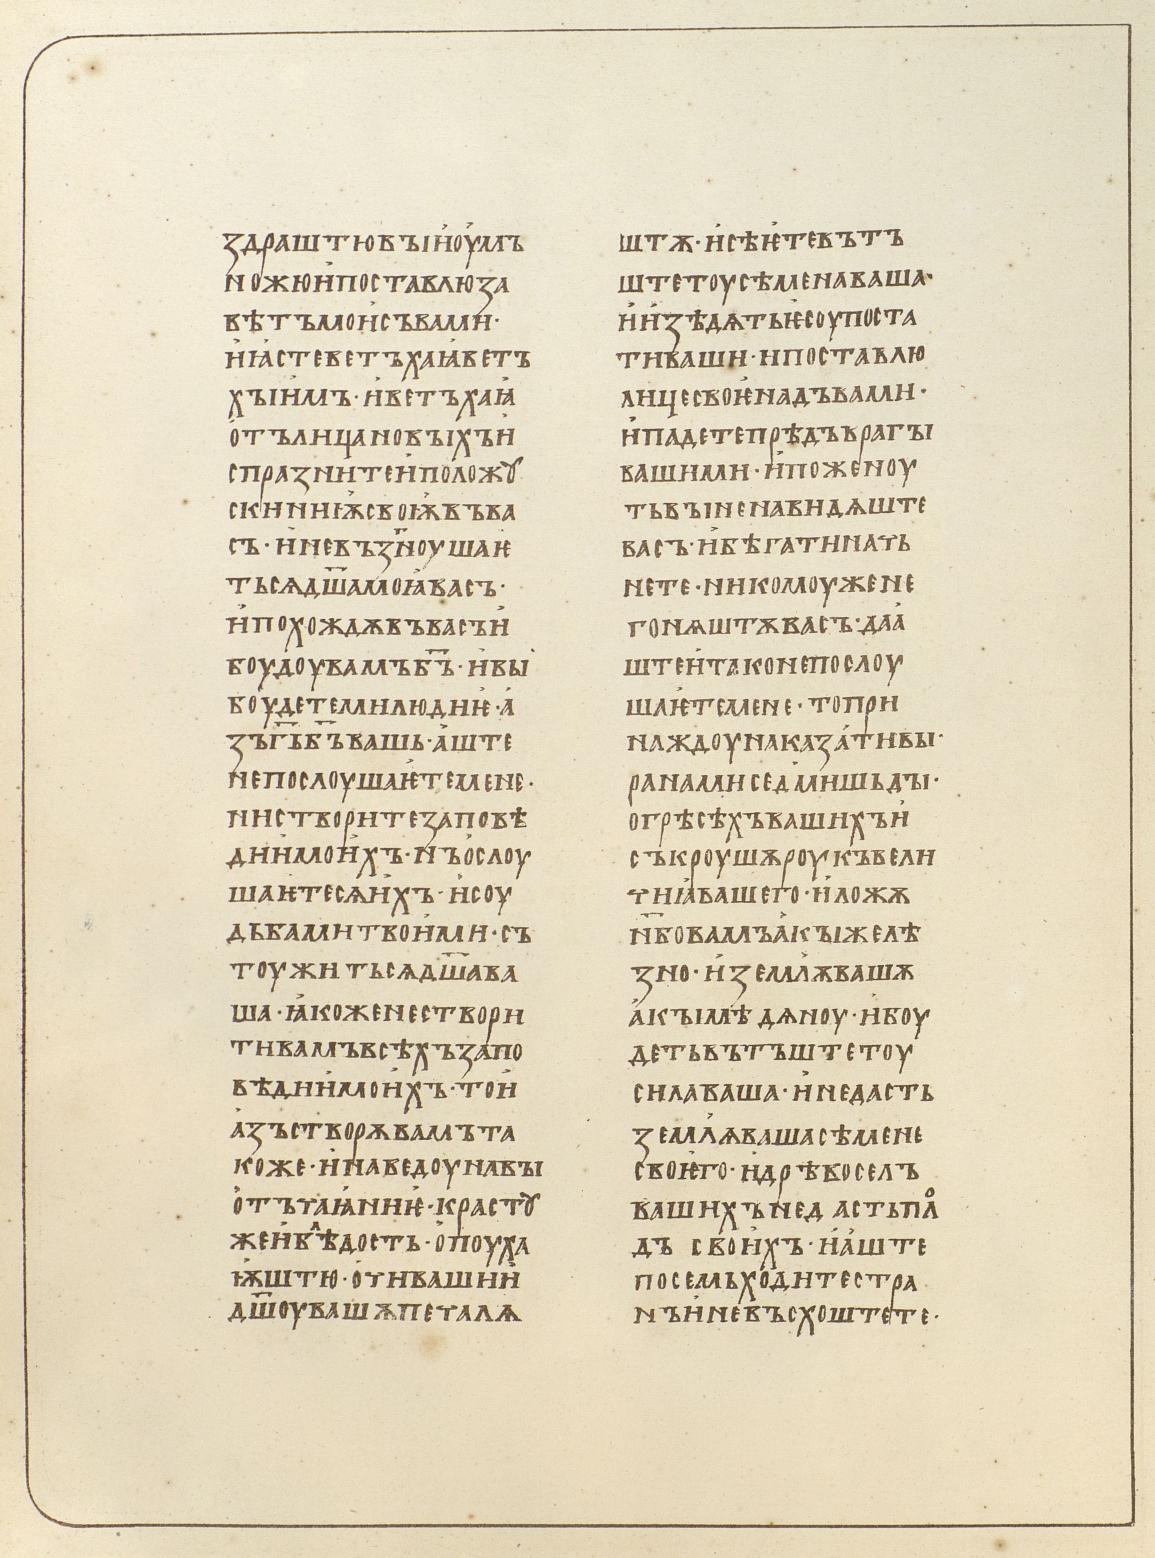 ꙁдраштювꙑꙇноумъ
ножюипоставлюꙁа
вѣтъмоисъвами·
иꙗстеветъхаꙗветъ
хꙑимъ·иветъхаꙗ
отълицановꙑхъи
спраꙁнитеиположꙋ
скиниѭсвоѭвъва
съ·иневъꙁноушаѥ
тьсѧдш҃амоꙗвасъ·
ипохождѫвъвасъи
боудоувамъб҃ъ·ивꙑ
боудетемилюдиѥ·а
ꙁъг҃ьб҃ъвашь·аште
непослоушаѥтемене·
нистворитеꙁаповѣ
диимоихъ·нъослоу
шаѥтесѧихъ·исоу
дьбамитвоими·съ
тоужитьсѧдш҃ава
ша·ꙗкоженествори
тивамъвсѣхъꙁапо
вѣдиимоихъ·тои
аꙁъстворѫвамъта
коже·инаведоунавꙑ
отътаꙗниѥ·крастꙋ
жеиблѣдость·опоуха
ѭштю·отивашии
дш҃оувашѫпеталѧ
штѫ·исѣѥтевътъ
штетоусѣменаваша·
ииꙁѣдѧтьѥсоупоста
тиваши·ипоставлю
лицесвоѥнадъвами·
ипадетепрѣдъврагꙑ
вашими·ипоженоу
тьвꙑненавидѧште
васъ·ибѣгатинать
нете·никомоужене
гонѧштѫвасъ·даа
штеитаконепослоу
шаѥтемене·топри
наждоунакаꙁативꙑ·
ранамиседмишьдꙑ·
огрѣсѣхъвашихъи
съкроушѫроукъвели
тиꙗвашего·иложѫ
нб҃овамъакꙑжелѣ
ꙁно·иꙁемлѫвашѫ
акꙑмѣдѧноу·ибоу
детьвътъштетоу
силаваша·инедасть
ꙁемлѧвашасѣмене
своѥго·идрѣвоселъ
вашихънедастьпло
дъсвоихъ·иаште
посемьходитестра
нъиневъсхоштете·